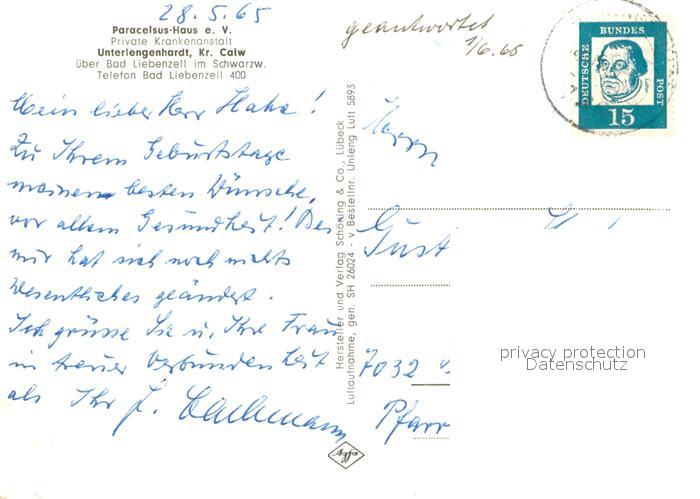 28.5.65
Paracelsus-Haus e. V.
Private Krankenanstalt
Unterlengenhardt, Kr. Calw
über Bad Liebenzell im Schwarzw.
Telefon Bad Liebenzell 400
Mein lieber Herr Hahn!
Zu Ihrem Geburtstage
meinen besten Wünsche,
vor allem Gesundheit! Bei
mir hat sich noch nichts
Wesentliches geändert.
Ich grüsse Sie u. Ihre Frau
in treuer Verbundenheit
als Ihr J. Bachmann
Hersteller und Verlag Schöning & Co., Lübeck
Luftaufnahme, gen: SH 26024 - v Bestellnr. Unleng Luft 5893
Agfa
geantwortet
1/6.65
DEUTSCHE
BUNDES
POST
15
Herrn
Gust
7032
Pfarr
privacy protection
Datenschutz